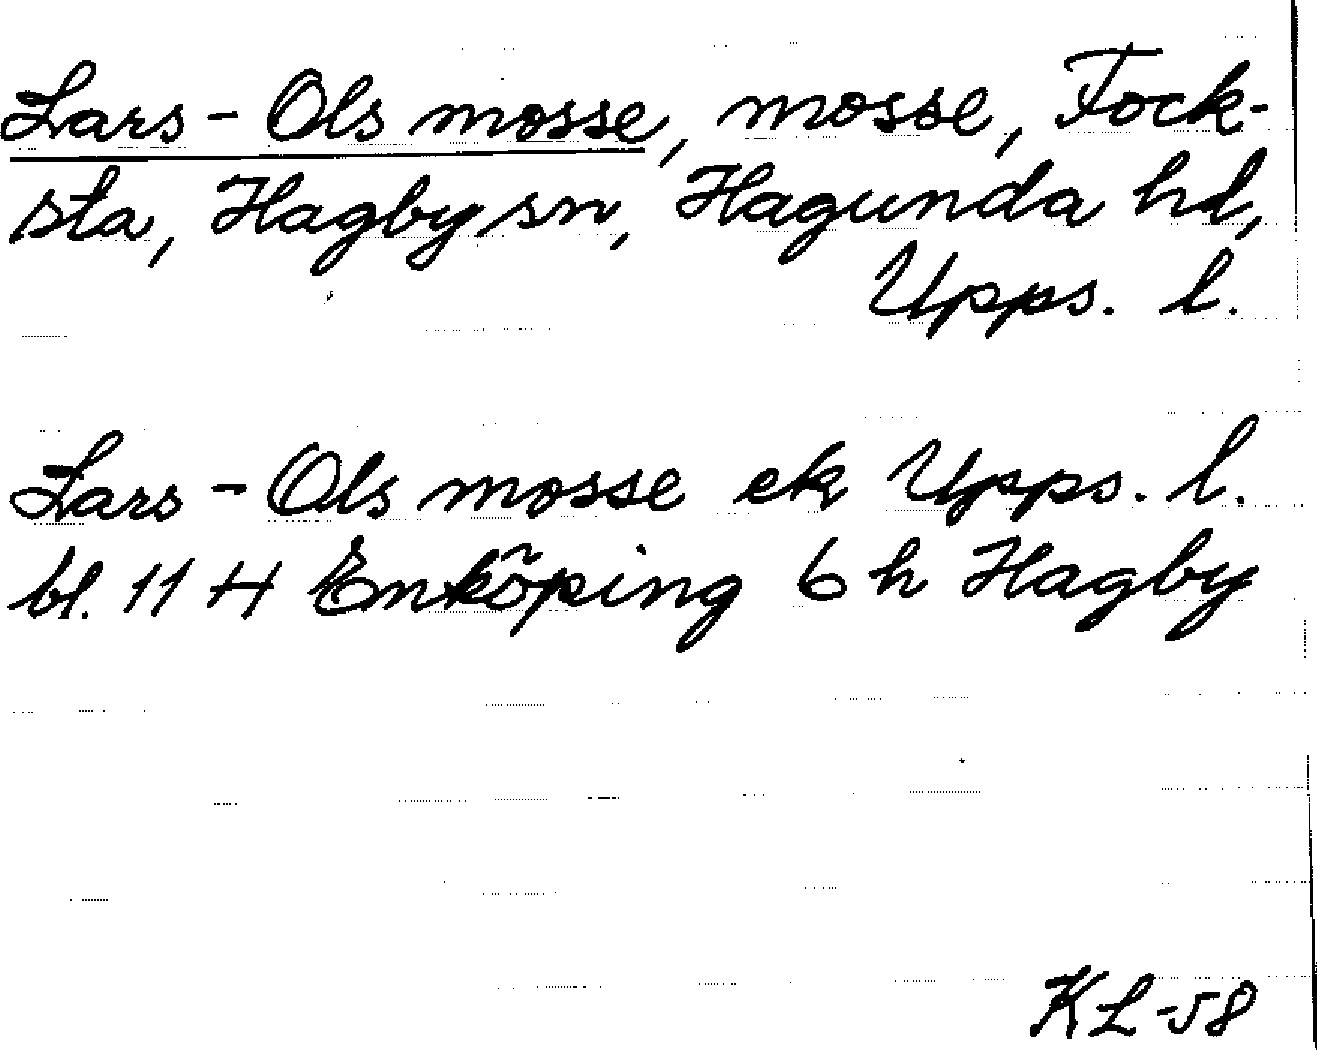 Lars-Ols mosse, mosse, Fock-
sta, Hagby sn, Hagunda hd,
Upps. l.
Lars-Ols mosse ek Upps. l.
bl. 11 H Enköping 6 h Hagby
KL-58